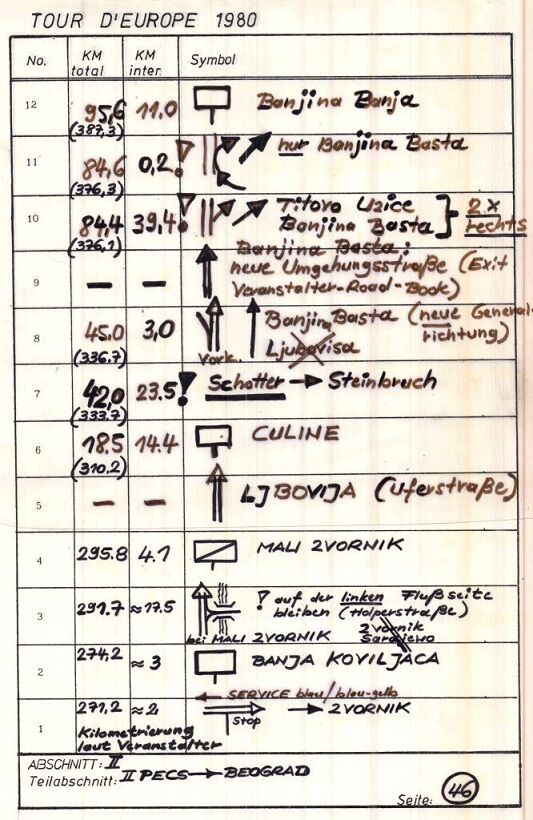 TOUR D'EUROPE 1980
No. KM total KM inter. Symbol
12 95,6 (387,3) 11.0 Banjina Banja
11 84,6 (376,3) 0,2 ! nur Banjina Basta
10 84,4 (376,1) 39,4 ! Titovo Uzice
Banjina Basta } 2 x rechts
9 — — Banjina Basta:
neue Umgehungsstraße (Exit
Veranstalter-Road-Book)
8 45.0 (336.7) 3,0 Vork. Banjina Basta (neue General-
richtung)
Ljubovisa
7 42,0 (333.7) 23.5 ! Schotter → Steinbruch
6 18.5 (310,2) 14.4 CULINE
5 — — LJBOVIJA (Uferstraße)
4 295.8 4.1 MALI ZVORNIK
3 291.7 ≈17.5 ! auf der linken Flußseite
bleiben (Holperstraße)
bei MALI ZVORNIK Zvornik
Sarajewo
2 274,2 ≈ 3 BANJA KOVILJACA
← SERVICE blau/blau-gelb
1 271,2 ≈ 2 Stop → ZVORNIK
Kilometrierung
laut Veranstalter
ABSCHNITT: II
Teilabschnitt: II PECS → BEOGRAD
Seite: 46